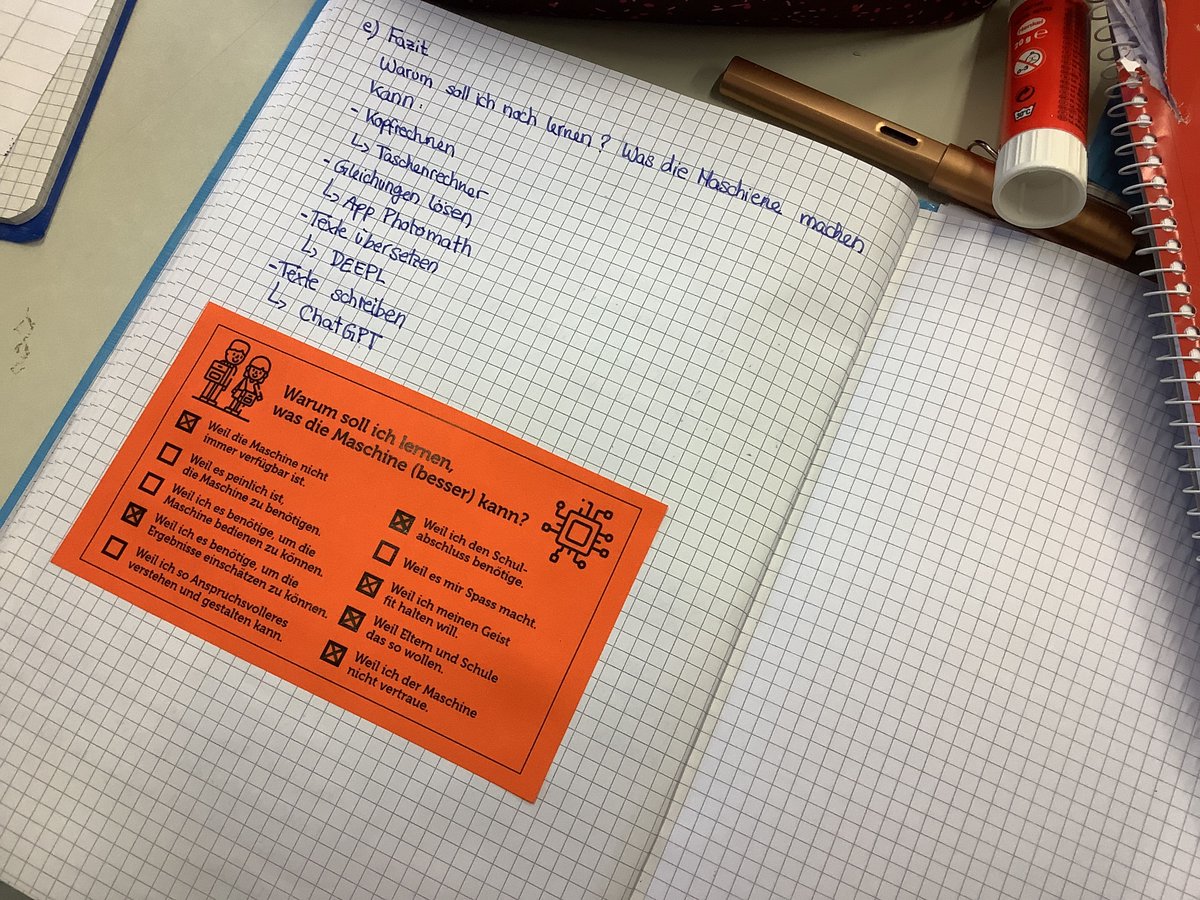 e) Fazit
Warum soll ich noch lernen? Was die Maschiene machen
kann:
- Kopfrechnen
↳ Taschenrechner
- Gleichungen lösen
↳ App Photomath
- Texte übersetzen
↳ DEEPL
- Texte schreiben
↳ ChatGPT
Warum soll ich lernen,
was die Maschine (besser) kann?
☒ Weil die Maschine nicht
immer verfügbar ist.
☐ Weil es peinlich ist,
die Maschine zu benötigen.
☐ Weil ich es benötige, um die
Maschine bedienen zu können.
☒ Weil ich es benötige, um die
Ergebnisse einschätzen zu können.
☐ Weil ich so Anspruchsvolleres
verstehen und gestalten kann.
☒ Weil ich den Schul-
abschluss benötige.
☐ Weil es mir Spass macht.
☒ Weil ich meinen Geist
fit halten will.
☒ Weil Eltern und Schule
das so wollen.
☒ Weil ich der Maschine
nicht vertraue.
20 g e